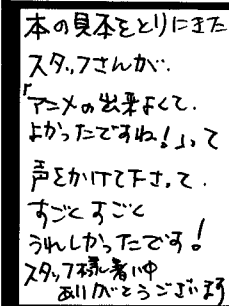 本の見本をとりにきた
スタッフさんが、
「アニメの出来よくて、
よかったですね!」って
声をかけて下さって、
すごくすごく
うれしかったです!
スタッフ様暑い中
ありがとうございます